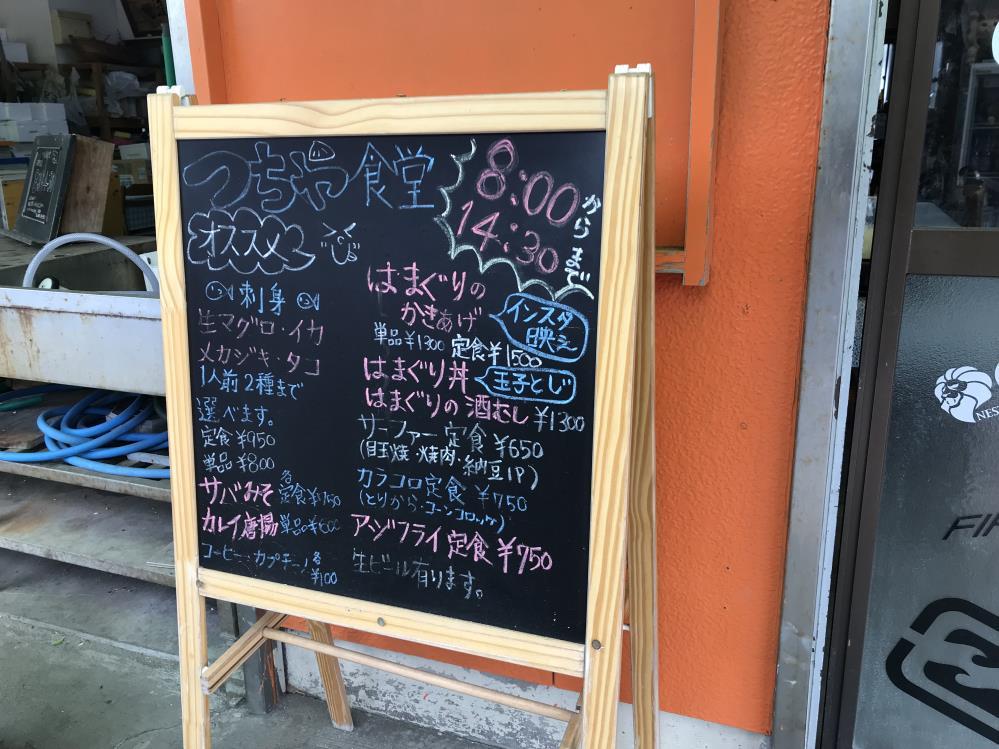 つちや食堂
8:00から
14:30まで
オススメ
刺身
生マグロ・イカ
メカジキ・タコ
1人前2種まで
選べます。
定食¥950
単品¥800
サバみそ 各定食¥750
カレイ唐揚 単品¥600
コーヒー・カプチーノ各
¥100
はまぐりの
かきあげ
インスタ
映え
単品¥1300 定食¥1500
はまぐり丼
玉子とじ
はまぐりの酒むし ¥1300
サーファー定食 ¥650
(目玉焼・焼肉・納豆1P)
カラコロ定食 ¥750
(とりから・コーンコロッケ)
アジフライ定食 ¥750
生ビール有ります。
NES
FI